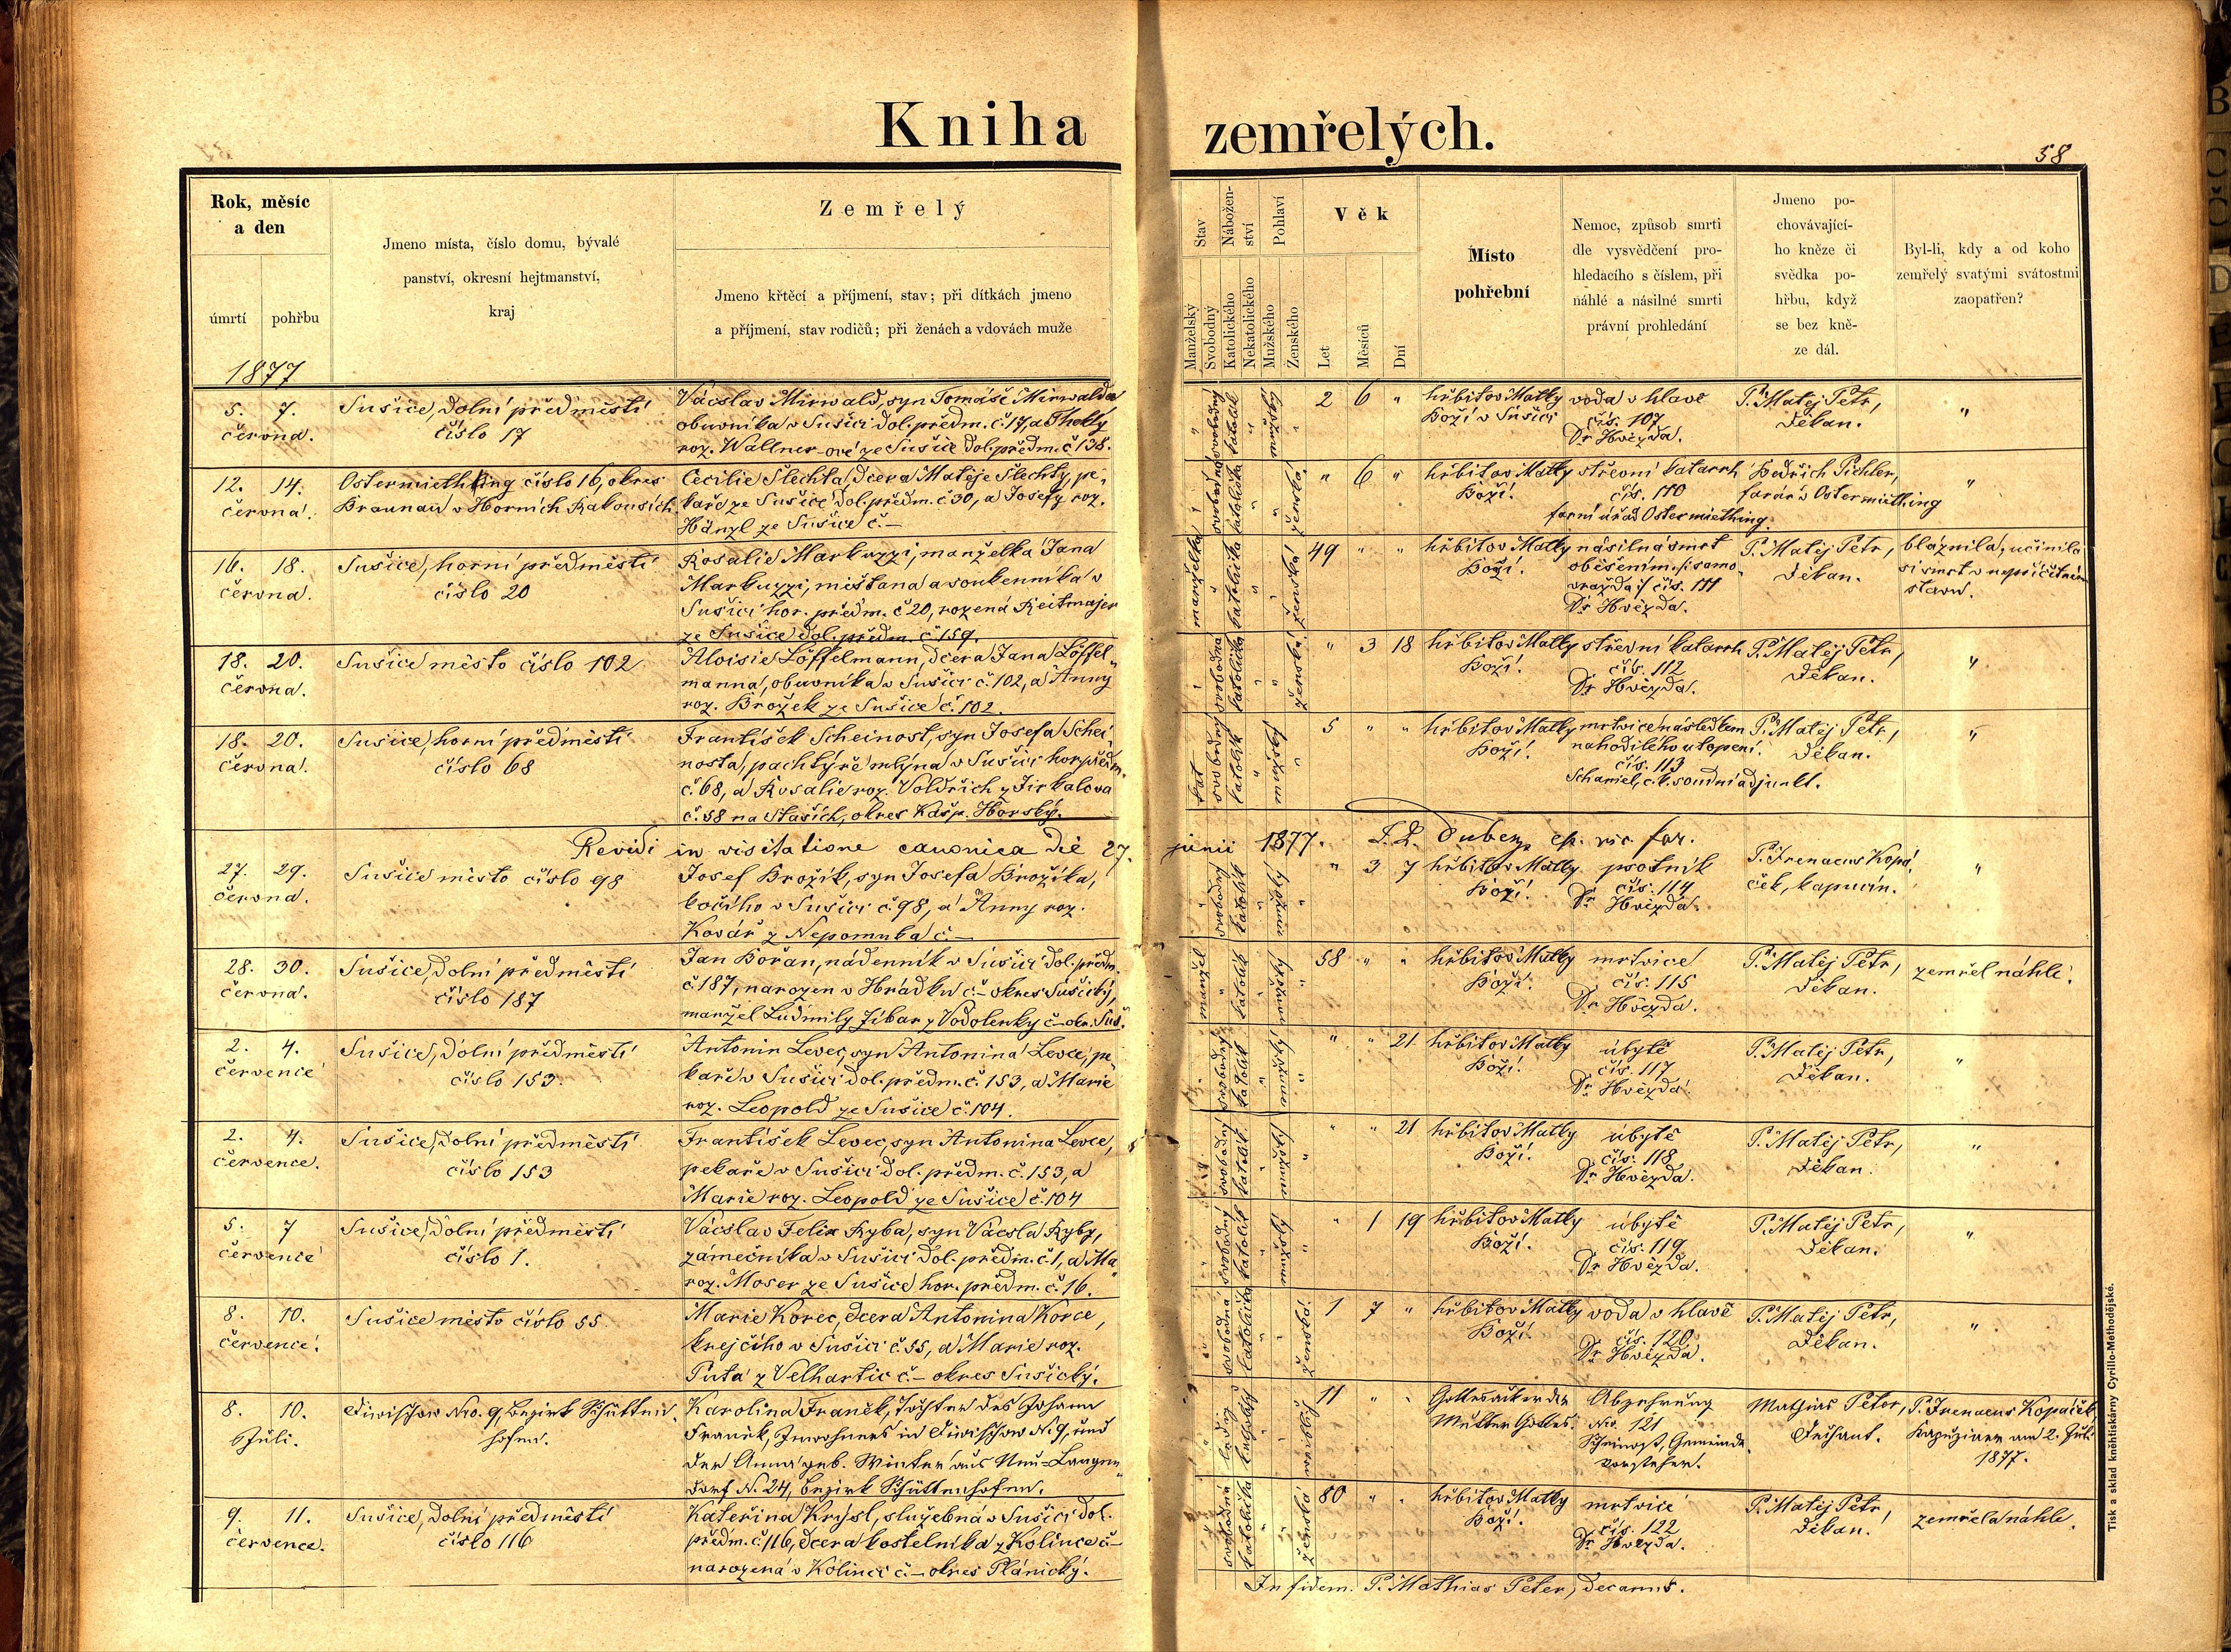 Kniha zemřelých.
58
Rok, měsíc
a den
úmrtí
pohřbu
1877
Jmeno místa, číslo domu, bývalé
panství, okresní hejtmanství,
kraj
Zemřelý
Jmeno křtěcí a příjmení, stav; při dítkách jmeno
a příjmení, stav rodičů; při ženách a vdovách muže
Stav
Manželský
Svobodný
Nábožen-
ství
Katolického
Nekatolického
Pohlaví
Mužského
Ženského
Věk
Let
Měsíců
Dní
Místo
pohřební
Nemoc, způsob smrti
dle vysvědčení pro-
hledacího s číslem, při
náhlé a násilné smrti
právní prohledání
Jmeno po-
chovávající-
ho kněze či
svědka po-
hřbu, když
se bez kně-
ze dál.
Byl-li, kdy a od koho
zemřelý svatými svátostmi
zaopatřen?
5. 7.
června.
Sušice, dolní předměstí
číslo 17
Vácslav Mirwald, syn Tomáše Mirwalda
obuvníka v Sušici dol. předm. č. 17, a Thekly
roz. Wallner-ové ze Sušice dol. předm. č 138.
" svobodný katolík " mužský "
2 6 "
hřbitov Matky
Boží v Sušici
voda v hlavě
čís. 107
Dr Hvězda.
P. Matěj Petr,
děkan.
"
12. 14.
června.
Ostermiething číslo 16, okres
Braunau v Horních Rakousích
Cecilie Šlechta, dcera Matěje Šlechty, pe-
kaře ze Sušice dol. předm. č 30, a Josefy roz.
Hänzl ze Sušice č. –
" svobodná katolička " " ženská
" 6 "
hřbitov Matky
Boží.
střevní katarrh
čís. 110
farní úřad Ostermiething.
Bedřich Pichler,
farář v Ostermiething
"
16. 18.
června.
Sušice, horní předměstí
číslo 20
Rosalie Markuzzi, manželka Jana
Markuzzi, měšťana a soukenníka v
Sušici hor. předm. č 20, rozená Reitmajer
ze Sušice dol. předm. č 159.
manželka " katolička " " ženská
49 " "
hřbitov Matky
Boží.
násilná smrt
oběšením /: samo-
vražda :/ čís. 111
Dr Hvězda.
P. Matěj Petr,
děkan.
bláznila, učinila
si smrt v nepříčetném
stavu.
18. 20.
června.
Sušice město číslo 102
Aloisie Löffelmann, dcera Jana Löffel-
manna, obuvníka v Sušici č. 102, a Anny
roz. Brožek ze Sušice č. 102.
" svobodná katolička " " ženská
" 3 18
hřbitov Matky
Boží.
střevní katarrh
čís. 112
Dr Hvězda.
P. Matěj Petr,
děkan.
"
18. 20.
června.
Sušice, horní předměstí
číslo 68
František Scheinost, syn Josefa Schei-
nosta, pachtýře mlýna v Sušici hor. předm.
č. 68, a Rosalie roz. Voldřich z Jirkalova
č. 58 na Staších, okres Kašp. Horský.
svobodný katolík " mužský "
5 " "
hřbitov Matky
Boží.
mrtvice následkem
nahodilého utopení.
čís. 113
Schamel, c. k. soudní adjunkt.
P. Matěj Petr,
děkan.
"
Revidi in visitatione canonica die 27. junii 1877.
27. 29.
června.
Sušice město číslo 98
Josef Brožík, syn Josefa Brožíka,
kočího v Sušici č. 98, a Anny roz.
Kovář z Nepomuka č. –
" svobodný katolík " mužský "
" 3 7
hřbitov Matky
Boží.
psotník
čís. 114
Dr Hvězda.
P. Irenaeus Kopá-
ček, kapucín.
"
28. 30.
června.
Sušice, dolní předměstí
číslo 187
Jan Bořan, nádenník v Sušici dol. předm.
č 187, narozen v Hrádku č – okres Sušický,
manžel Ludmily Jíbar z Vodolenky č – okr. Suš.
manžel " katolík " mužský "
58 " "
hřbitov Matky
Boží.
mrtvice
čís. 115
Dr Hvězda.
P. Matěj Petr,
děkan.
zemřel náhle.
2. 4.
července
Sušice, dolní předměstí
číslo 153.
Antonín Levec, syn Antonína Levce, pe-
kaře v Sušici dol. předm. č. 153, a Marie
roz. Leopold ze Sušice č. 104.
svobodný katolík " mužský "
" " 21
hřbitov Matky
Boží.
úbytě
čís. 117
Dr Hvězda.
P. Matěj Petr,
děkan.
"
2. 4.
července.
Sušice, dolní předměstí
číslo 153
František Levec, syn Antonína Levce,
pekaře v Sušici dol. předm. č. 153, a
Marie roz. Leopold ze Sušice č. 104
svobodný katolík " mužský "
" " 21
hřbitov Matky
Boží.
úbytě
čís. 118
Dr Hvězda.
P. Matěj Petr,
děkan.
"
5. 7
července
Sušice, dolní předměstí
číslo 1.
Vácslav Felix Ryba, syn Vácsla Ryby,
zámečníka v Sušici dol. předm. č. 1, a Ma
roz. Moser ze Sušice hor. předm. č. 16.
svobodný katolík " mužský "
" 1 19
hřbitov Matky
Boží.
úbytě
čís. 119
Dr Hvězda.
P. Matěj Petr,
děkan.
"
8. 10.
července.
Sušice město číslo 55.
Marie Korec, dcera Antonína Korce,
krejčího v Sušici č. 55, a Marie roz.
Puta z Velhartic č. – okres Sušický.
svobodná katolička " " ženská
1 7 "
hřbitov Matky
Boží.
voda v hlavě
čís. 120
Dr Hvězda.
P. Matěj Petr,
děkan.
"
8. 10.
Juli.
Diwischow Nro. 9, Bezirk Schütten-
hofen.
Karolina Franěk, Tochter des Johann
Franěk, Inwohners in Diwischow N. 9, und
der Anna geb. Winter aus Neu-Langen-
dorf N. 24, Bezirk Schüttenhofen.
" ledig katholisch " " weiblich
11 " "
Gottesacker der
Mutter Gottes.
Abzehrung
Nro. 121
Scheinost, Gemeinde-
vorsteher.
Mathias Peter,
Dechant.
P. Irenaeus Kopáček,
Kapuziner am 2. Juli
1877.
9. 11.
července.
Sušice, dolní předměstí
číslo 116
Kateřina Krysl, služebná v Sušici dol.
předm. č. 116, dcera kostelníka z Kolince č –
narozená v Kolinci č. – okres Plánický.
svobodná katolička " " ženská
80 " "
hřbitov Matky
Boží.
mrtvice
čís. 122
Dr Hvězda.
P. Matěj Petr,
děkan.
zemřela náhle.
In fidem. P. Mathias Peter, decanus.
Tisk a sklad knihtiskárny Cyrillo-Methodějské.